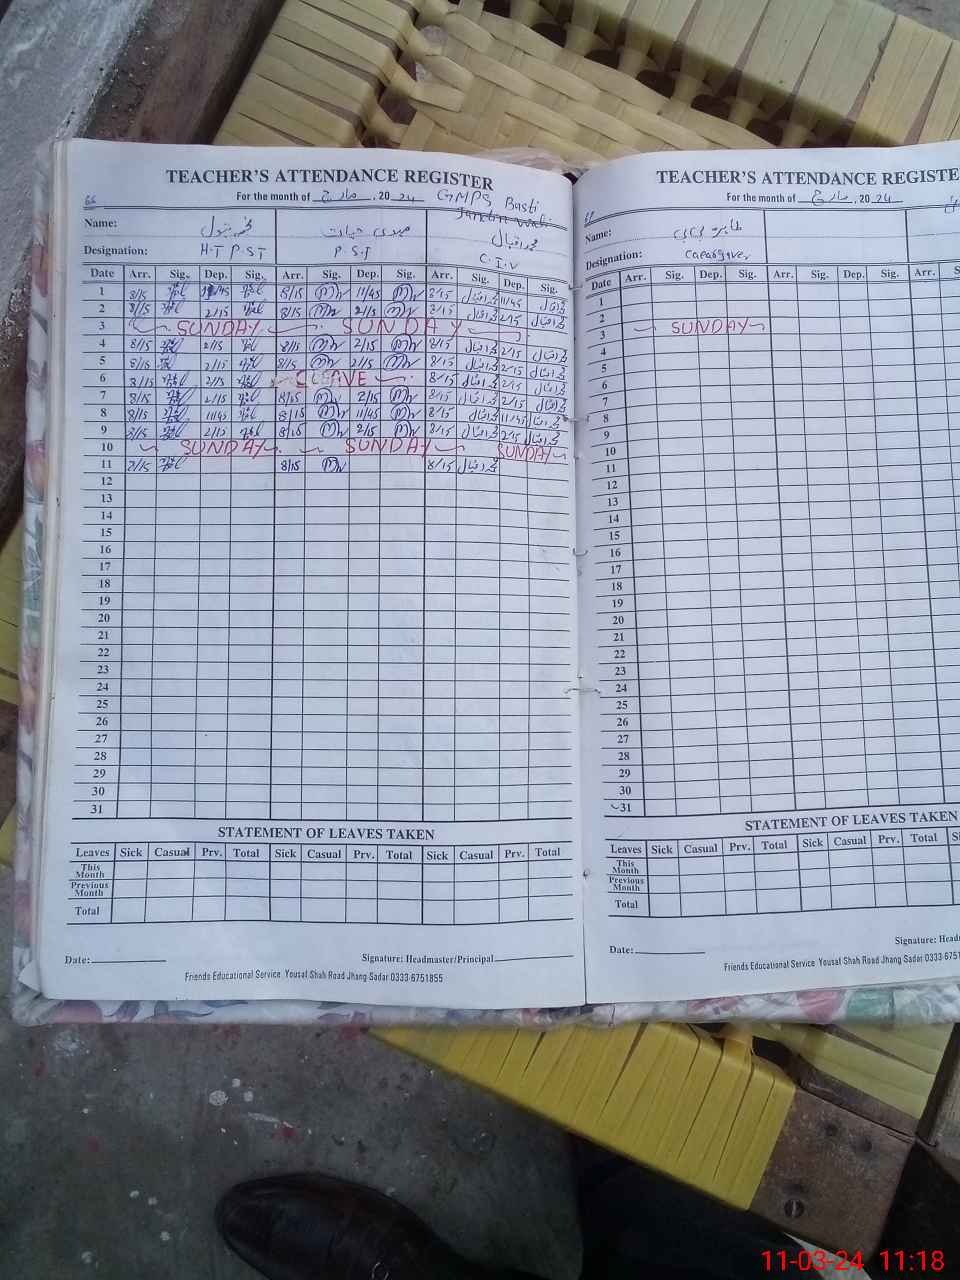 TEACHER'S ATTENDANCE REGISTER
For the month of مارچ, 2024 GMPS Basti
66
Name:
Designation: H.T P.S.T P.S.T C.I.V
محمد اقبال
Date Arr. Sig. Dep. Sig. Arr. Sig. Dep. Sig. Arr. Sig. Dep. Sig.
1 8/15 11/45 8/15 11/45 8/15 11/45
2 8/15 2/15 8/15 2/15 8/15 2/15
3 SUNDAY SUNDAY
4 8/15 2/15 8/15 2/15 8/15 2/15
5 8/15 2/15 8/15 2/15 8/15 2/15
6 8/15 2/15 C LEAVE 8/15 2/15
7 8/15 2/15 8/15 2/15 8/15 2/15
8 8/15 11/45 8/15 11/45 8/15 11/45
9 8/15 2/15 8/15 2/15 8/15 2/15
10 SUNDAY SUNDAY SUNDAY
11 8/15 8/15 8/15
12
13
14
15
16
17
18
19
20
21
22
23
24
25
26
27
28
29
30
31
STATEMENT OF LEAVES TAKEN
Leaves Sick Casual Prv. Total Sick Casual Prv. Total Sick Casual Prv. Total
This Month
Previous Month
Total
Date: Signature: Headmaster/Principal
Friends Educational Service Yousaf Shah Road Jhang Sadar 0333-6751855
TEACHER'S ATTENDANCE REGISTE
For the month of مارچ, 2024
67
Name: طاہرہ بی بی
Designation: Careagiver
Date Arr. Sig. Dep. Sig. Arr. Sig. Dep. Sig. Arr. S
1
2
3 SUNDAY
4
5
6
7
8
9
10
11
12
13
14
15
16
17
18
19
20
21
22
23
24
25
26
27
28
29
30
31
STATEMENT OF LEAVES TAKEN
Leaves Sick Casual Prv. Total Sick Casual Prv. Total Si
This Month
Previous Month
Total
Date: Signature: Head
Friends Educational Service Yousaf Shah Road Jhang Sadar 0333-6751
11-03-24 11:18